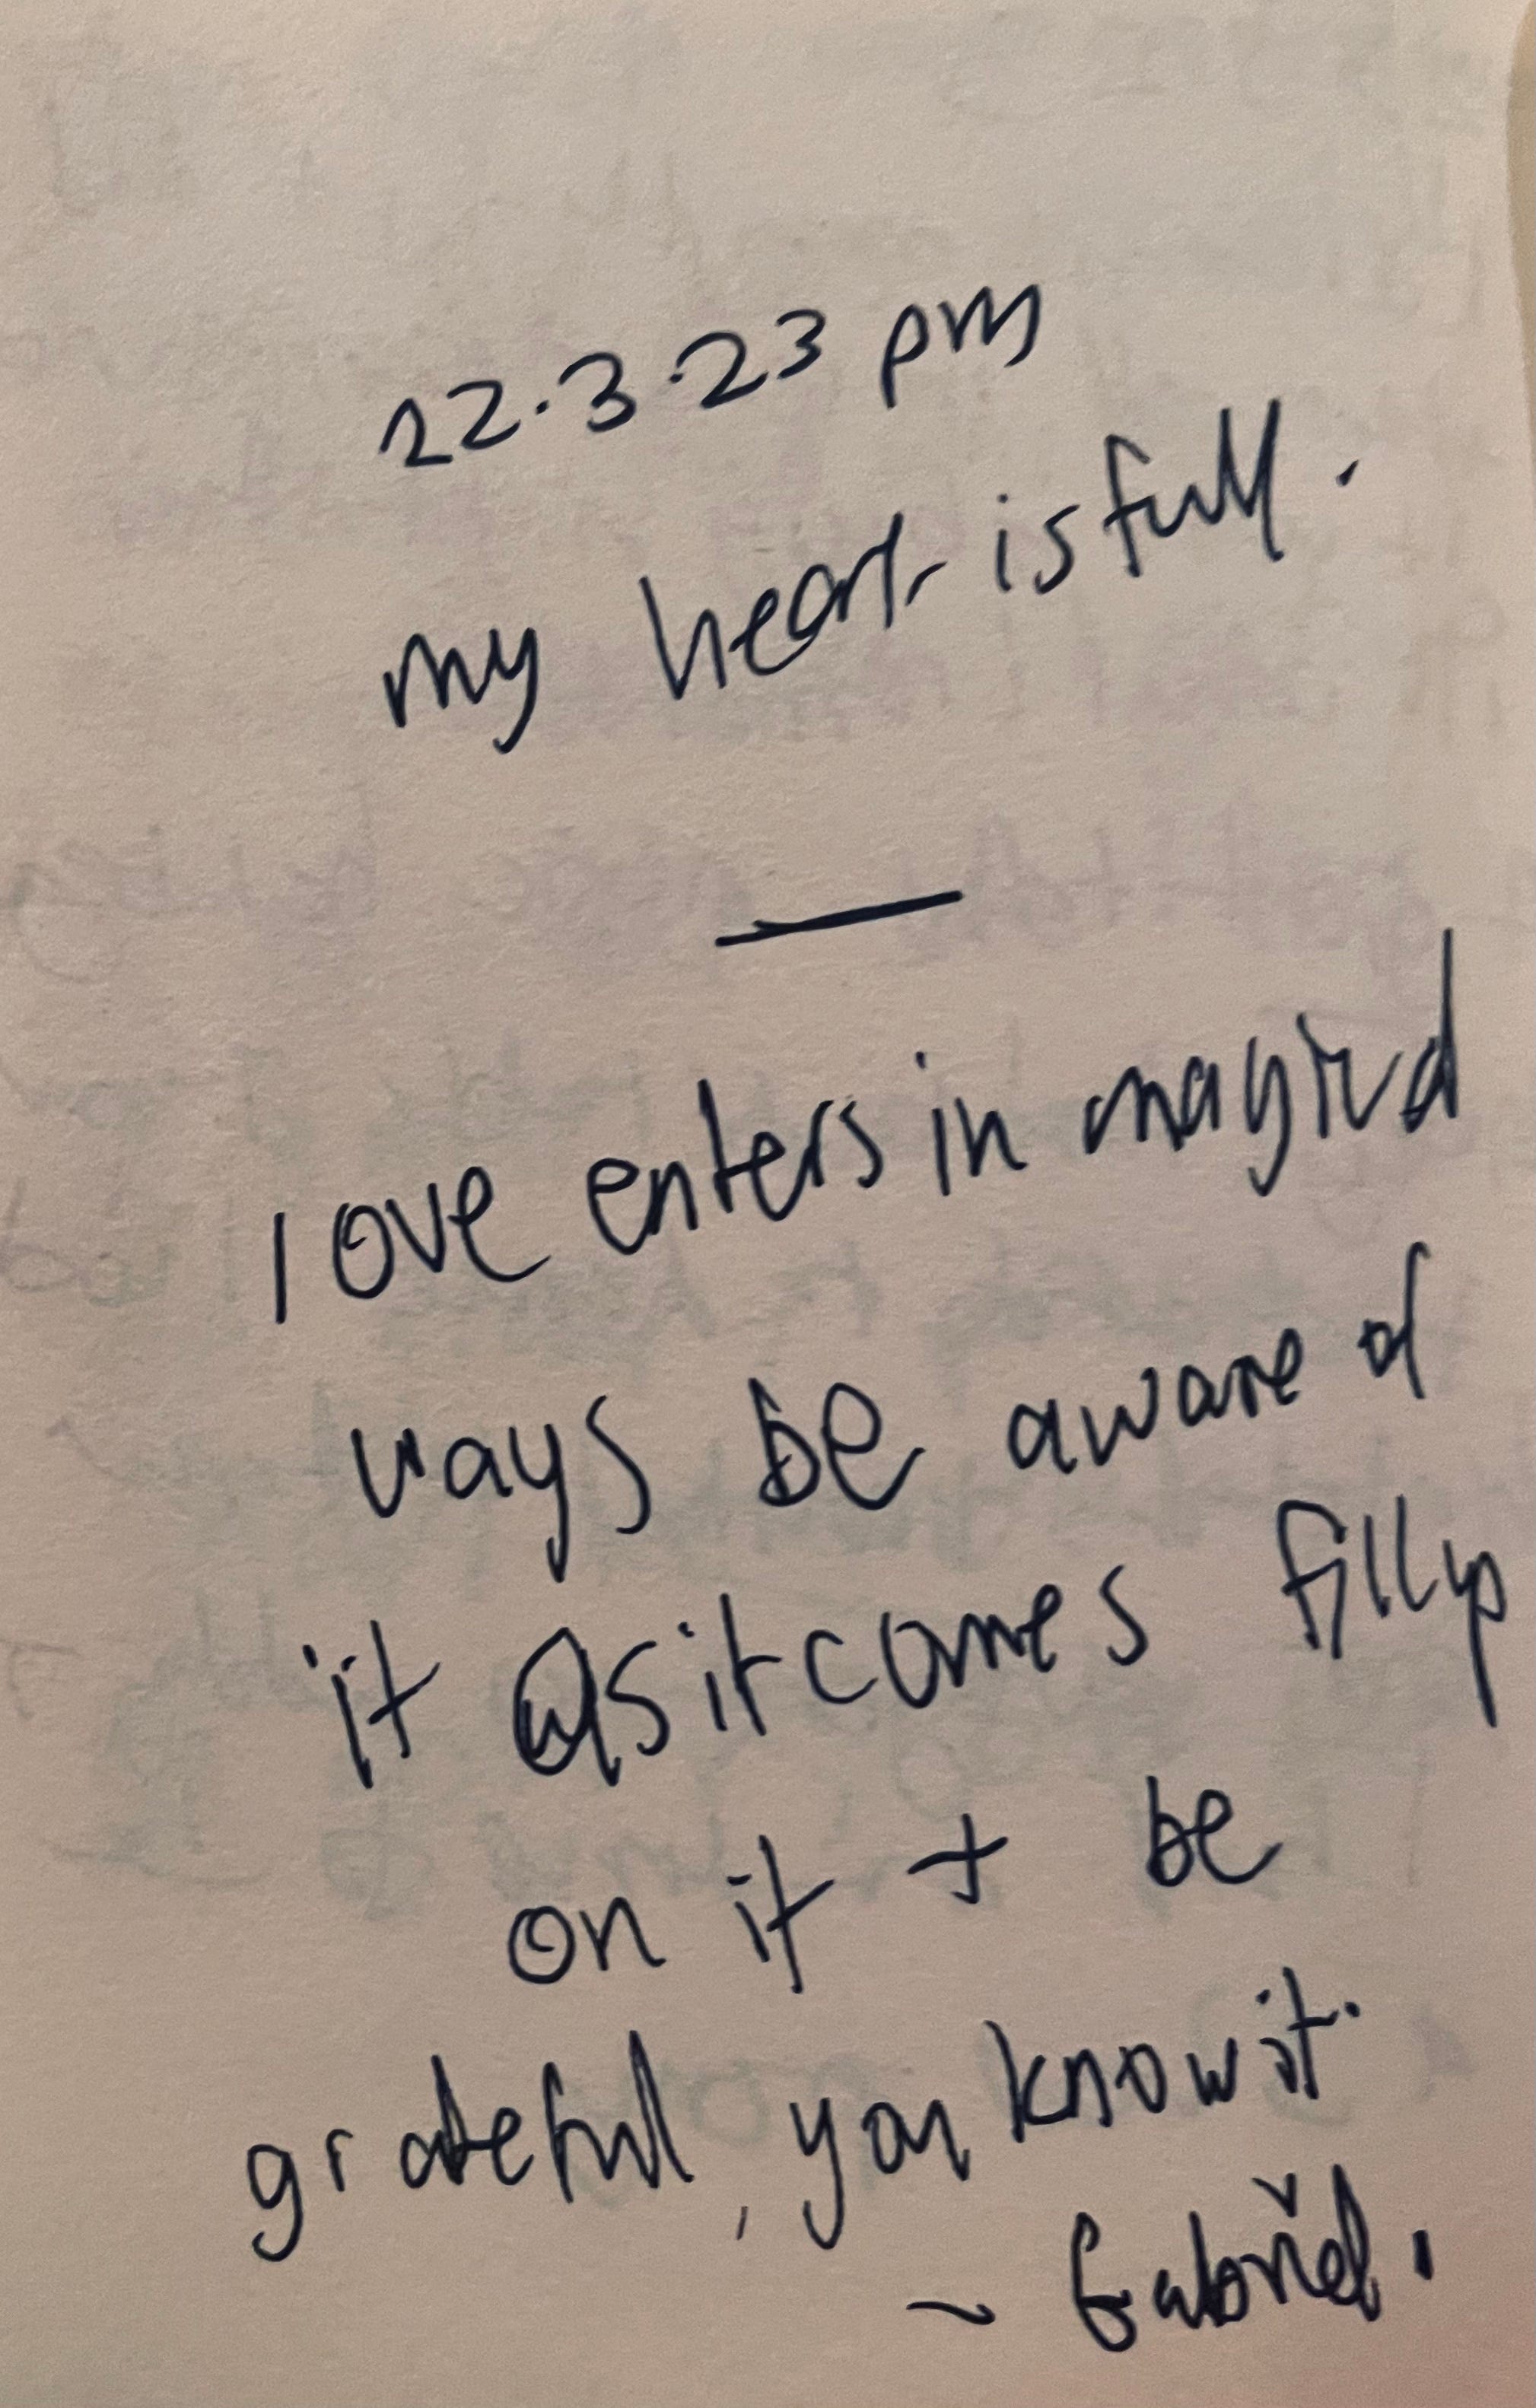 22.3.23 pm
my heart is full.
love enters in
ways be aware of
it as it comes fill up
on it + be
grateful, you know it.
~ Gabriel.